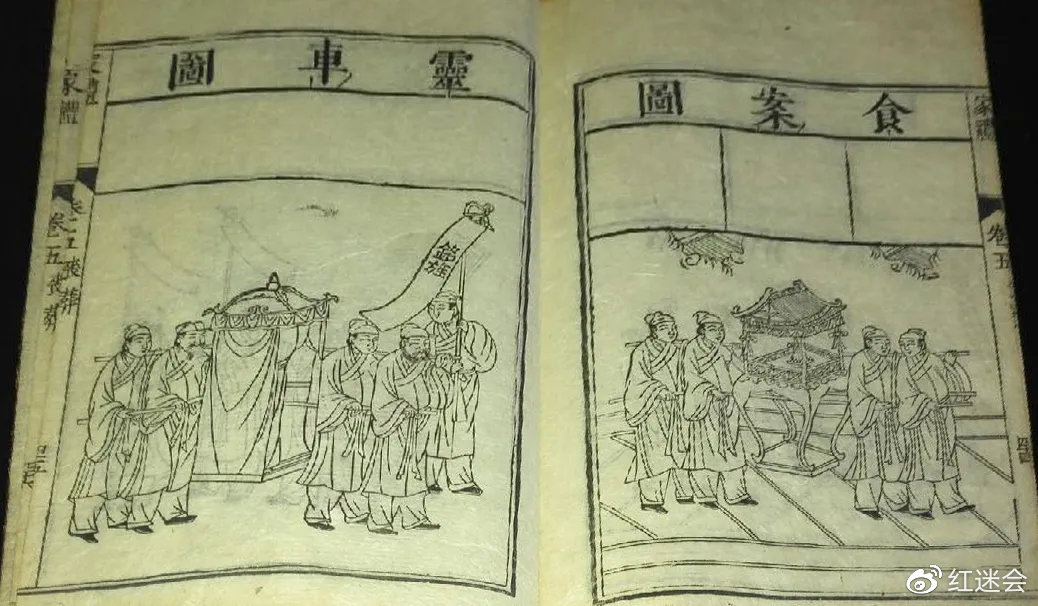 食案圖
家禮
卷五
靈車圖
銘旌
家禮
红迷会